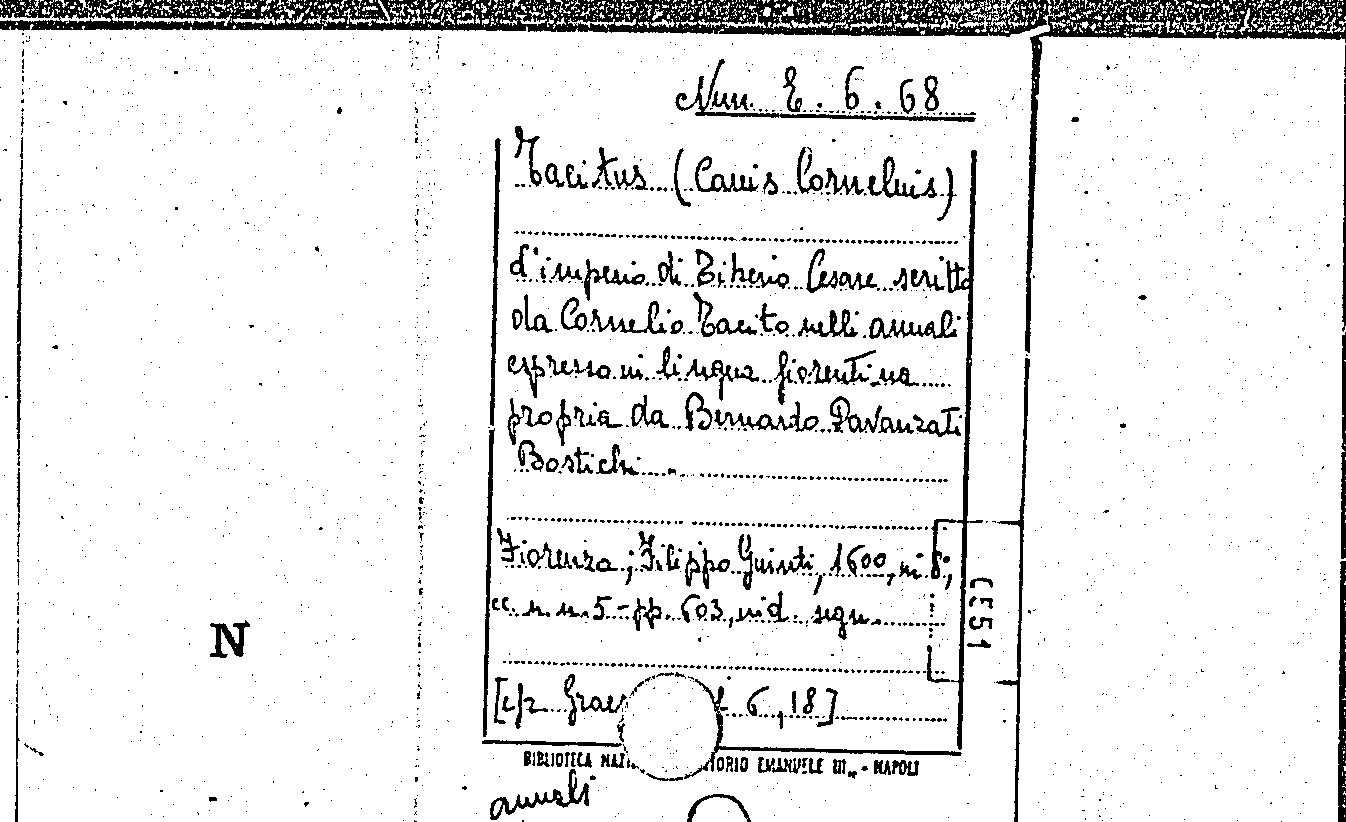 Nun. E. 6. 68
Tacitus (Caius Cornelius)
L'imperio di Tiberio Cesare scritto
da Cornelio Tacito nelli annali
espresso in lingua fiorentina
propria da Bernardo Davanzati
Bostichi.
Fiorenza, Filippo Giunti, 1600, in 8°,
cc. n. n. 5 - pp. 603, ind. segn.
[cfr. Graes 6, 18]
BIBLIOTECA NAZ TORIO EMANUELE III - NAPOLI
annali
N
CE51